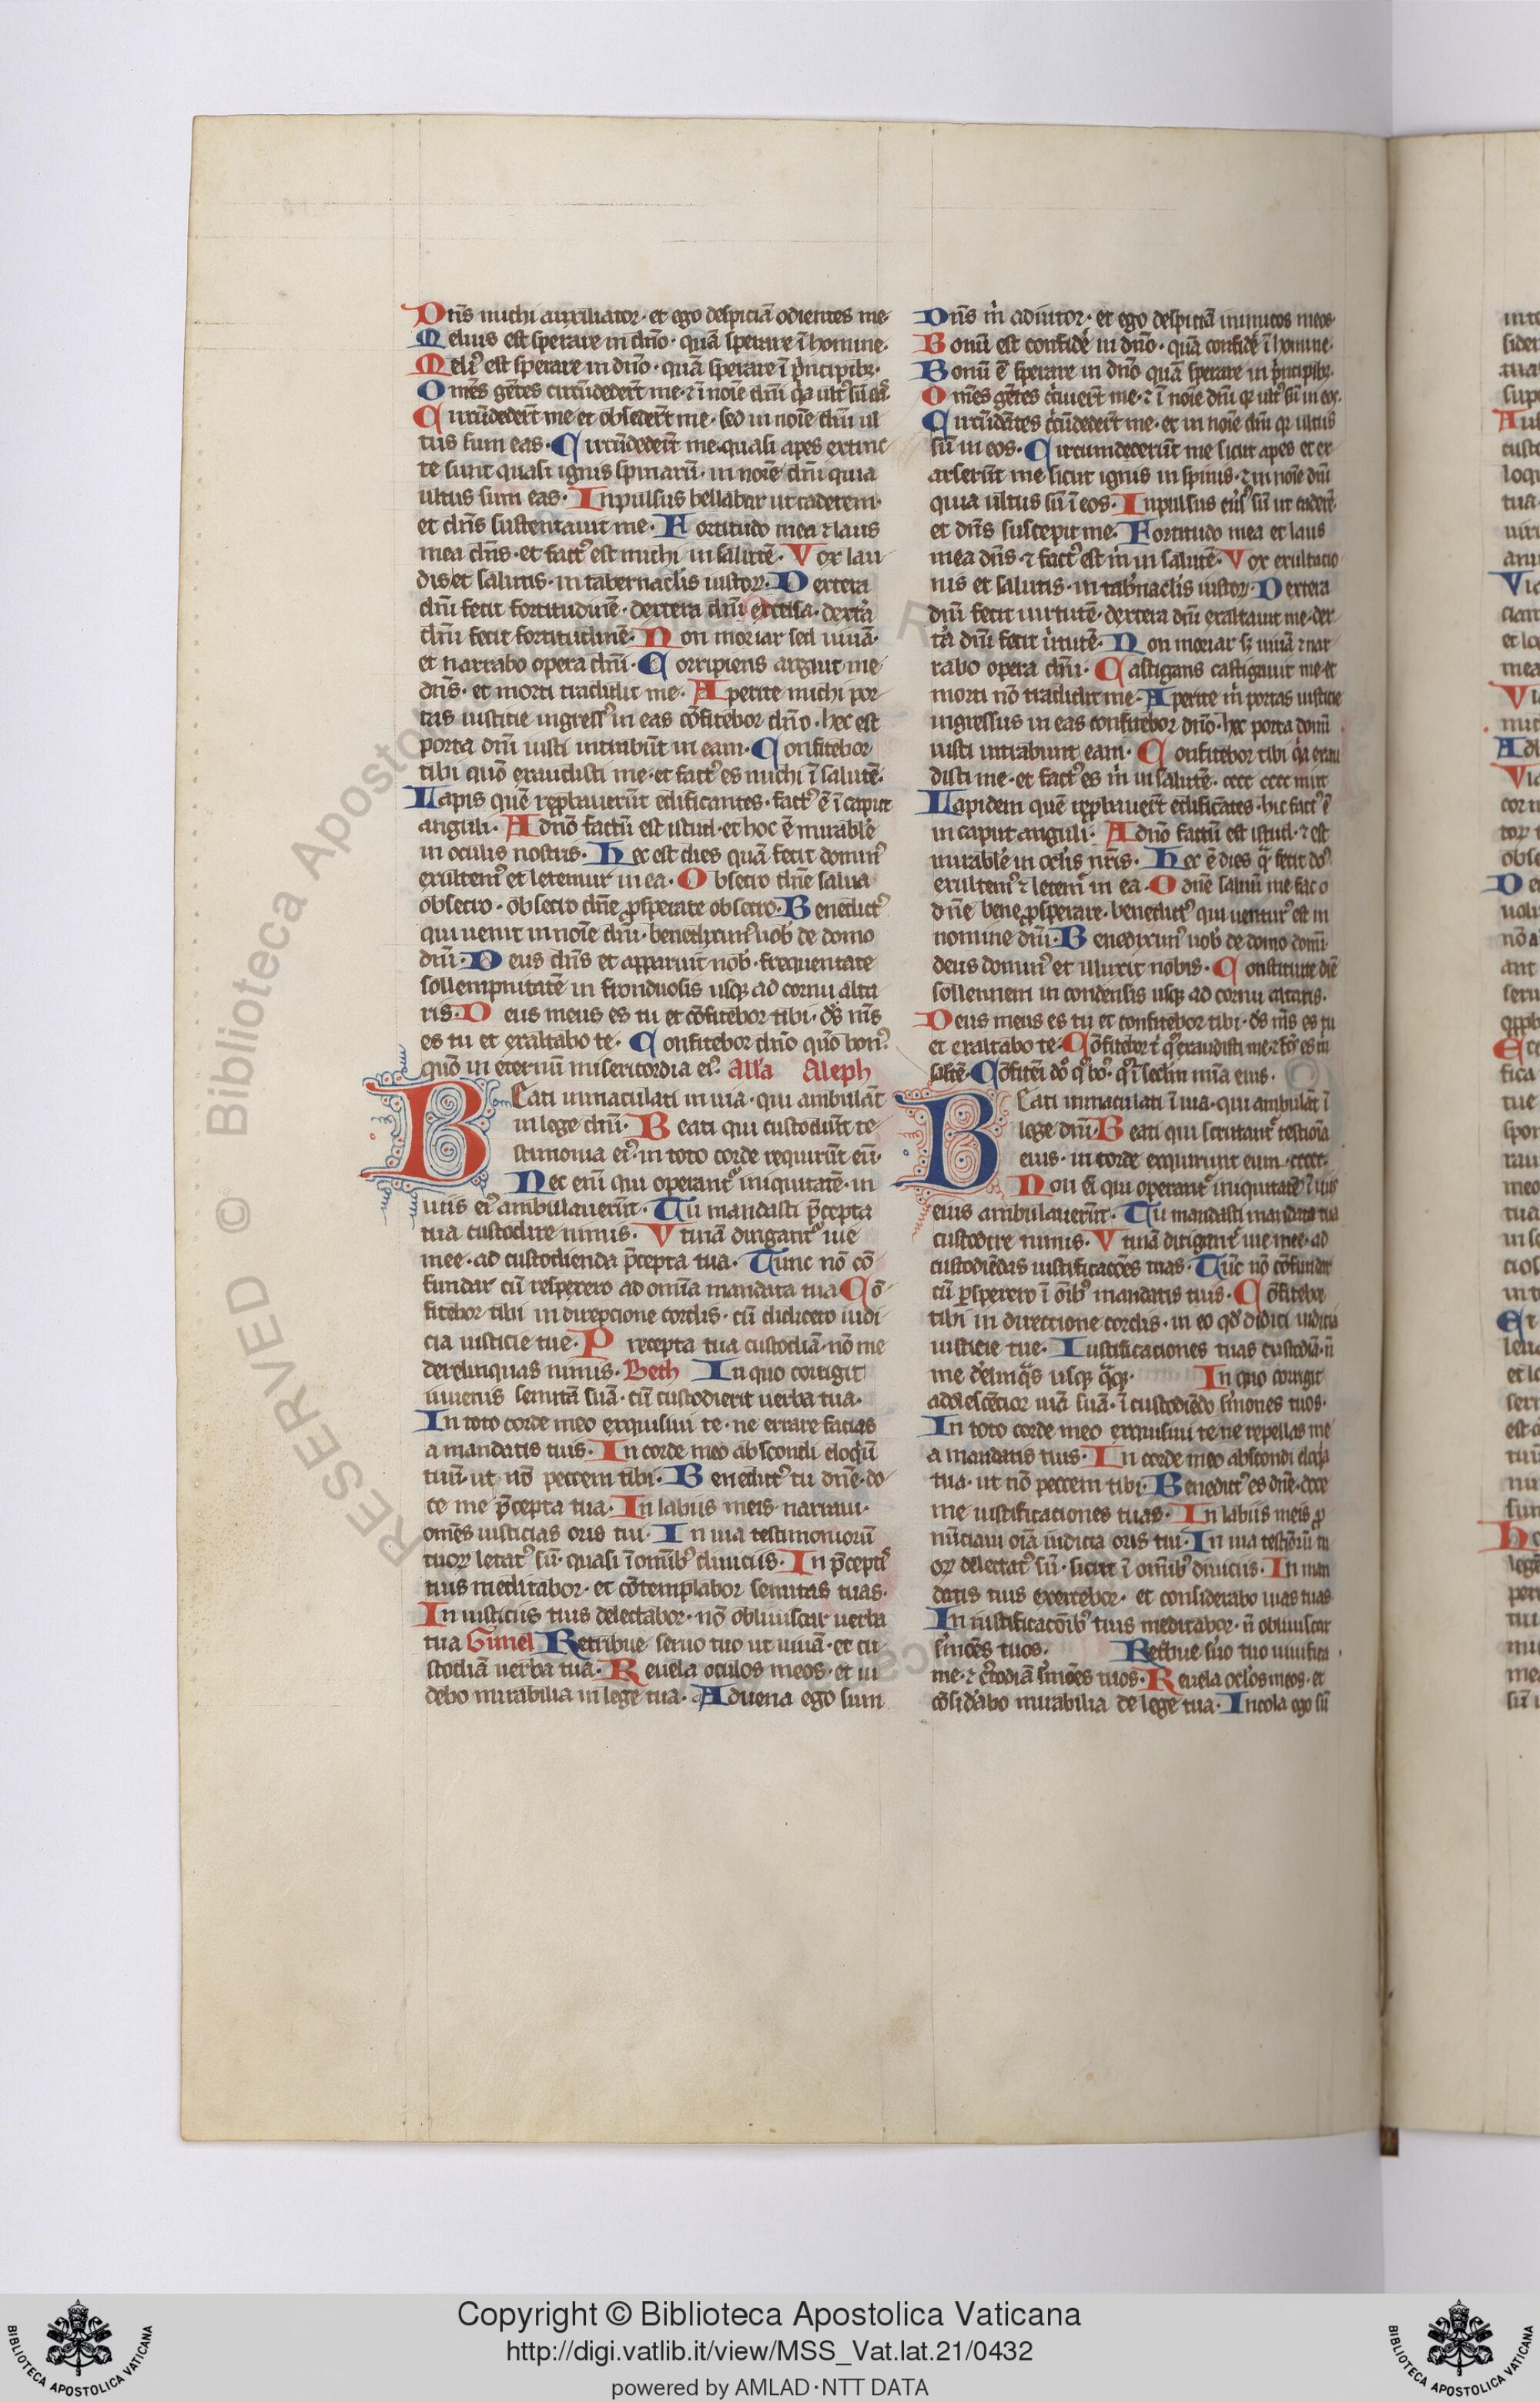 Dn̄s michi auxiliator· et ego despiciā odientes me·
Melius est sperare in dn̄o· quā sperare ī homine·
Meliꝰ est sperare in dn̄o· quā sperare ī p̄ncipibꝫ·
Om̄s gētes circūdeder̄t me· ⁊ ī noīe dn̄i q̇a ultꝰ sū eas
Circūdeder̄t me et obseder̄t me· sed in noīe dn̄i ul
tus sum eas· Circūdeder̄t me quasi apes extinc
te sunt quasi ignis spinarū· in noīe dn̄i quia
ultus sum eas· Inpulsus bellabar ut caderem·
et dn̄s sustentauit me· Fortitudo mea ⁊ laus
mea dn̄s· et factꝰ est michi in salutē· Vox lau
dis et salutis· in tabernacl̓is iustoꝝ· Dextera
dn̄i fecit fortitudinē· dextera dn̄i excelsa· dext̓a
dn̄i fecit fortitudinē· Non moriar sed uiuā·
et narrabo opera dn̄i· Corripiens arguit me
dn̄s· et morti tradidit me· Aperite michi por
tas iusticie ingressꝰ in eas cōfitebor dn̄o· hec est
porta dn̄i iusti intrabūt in eam· Confitebor
tibi quō exaudisti me· et factꝰ es michi ī salutē·
Lapis quē reꝓbauerūt edificantes· factꝰ ē ī caput
anguli· A dn̄o factū est istud· et hoc ē mirabile
in oculis nostris· Hec est dies quā fecit dominꝰ
exultemꝰ et letemur in ea· Obsecro dn̄e salua
obsecro· obsecro dn̄e ꝓsperare obsecro· Benedictꝰ
qui uenit in noīe dn̄i· benediximꝰ uob̓ de domo
dn̄i· Deus dn̄s et apparuit nob̓· frequentate
sollempnitatē in frondosis usqꝫ ad cornu alta
ris· Deus meus es tu et cōfitebor tibi· ds̄ m̄s
es tu et exaltabo te· Confitebor dn̄o quō bonꝰ
quō in eternū misericordia eiꝰ· All̓a Aleph
Beati inmaculati in uia· qui ambulāt
in lege dn̄i· Beati qui custodiūt te
stimonia eiꝰ· in toto corde requirūt eū·
Nec eni qui operantꝰ iniquitatē· in
uiis eiꝰ ambulauerūt· Tu mandasti p̄cepta
tua custodire nimis· Vtinā diriganꝰ uie
mee· ad custodienda p̄cepta tua· Tunc nō cō
fundar cū respexero ad omīa mandata tua Cō
fitebor tibi in direpcione cordis· cū didicero iudi
cia iusticie tue· Precepta tua custodiā· nō me
derelinquas nimis· Beth In quo corrigit
iuuenis semitā suā· cū custodierit uerba tua·
In toto corde meo exquisiui te· ne errare facias
a mandatis tuis· In corde meo abscondi eloq̇ū
tuū· ut nō peccem tibi· Benedictꝰ tu dn̄e· do
ce me p̄cepta tua· In labiis meis narraui·
omēs iusticias oris tui· In uia testimoniorū
tuoꝝ letatꝰ sū· quasi ī omībꝰ diuiciis· In p̄cepti
tuis meditabor· et cōtemplabor semitas tuas·
In iusticiis tuis delectabor· nō obliuiscar uerba
tua Gimel Retribue seruo tuo ut uiuā· et cu
stodiā uerba tua· Reuela oculos meos· et ui
debo mirabilia in lege tua· Aduena ego sum
Dn̄s m̄ adiutor· et ego despiciā inimicos meos·
Bonū est confid̓e in dn̄o· quā confid̓e ī homine·
Bonū ē sperare in dn̄o quā sperare in p̄ncipibꝫ·
Om̄s gētes
Circūdātes circūdeder̄t me· et in noīe dn̄i qꝫ ultus
sū in eos· Circumdederūt me sicut apes et ex
arserūt me sicut ignis in spinis· ⁊ in noīe dn̄i
quia ultus sū ī eos· Inpulsus
et dn̄s suscepit me· Fortitudo mea et laus
mea dn̄s· ⁊ factꝰ est m̄ in salutē· Vox exultacio
nis et salutis· in tab̓nacl̓is iustoꝝ· Dextera
dn̄i fecit uirtutē· dextera dn̄i exaltauit me· dex
t̓a dn̄i fecit ūtutē· Non moriar sꝫ uiuā ⁊ nar
rabo opera dn̄i· Castigans castigauit me et
morti nō tradidit me· Aperite m̄ portas iusticie
ingressus in eas confitebor dn̄o· hec porta domī
iusti intrabunt eam· Confitebor tibi q̇a exau
disti me· et factꝰ es m̄ in salutē·
Lapidem quē reꝓbauer̄t edificātes· hic factꝰ ē
in caput anguli· A dn̄o factū est istud· ⁊ est
mirabile in ocl̓is nr̄is· Hec ē dies
exultemꝰ ⁊ letem̄ in ea· O dn̄e saluū me fac o
dn̄e bene ꝓsperare· benedictꝰ qui uenturꝰ est in
nomine dn̄i· Benediximꝰ uob̓ de domo domī
deus dominꝰ et illuxit nobis· Constituite diē
sollennem in condensis usqꝫ ad cornu altaris·
Deus meus es tu et confitebor tibi· ds̄ m̄s es tu
et exaltabo te· Cōfitebor
Beati inmaculati ī uia· qui ambulāt ī
lege dn̄i· Beati qui scrutantꝰ testioīa
eius· in corde exquirunt eum·
Non eī qui operantꝰ iniquitatē ī uiis
eius ambulauerūt· Tu mandasti mandata tua
custodire nimis· Vtinā dirigantꝰ uie mee· ad
custodiēdas iustificacōes tuas· Tūc nō cōfundar
cū ꝑspexero ī oībꝰ mandatis tuis· Cōfitebor
tibi in directione cordis· in eo qd̓ didici iudicia
iusticie tue· Iustificaciones tuas custodiā· n̄
me In quo corrigit
adolescēcior uiā suā· ī custodiēdo s̓mones tuos·
In toto corde meo exquisiui te ne repellas me
a mandatis tuis· In corde meo abscondi eloq̇a
tua· ut nō peccem tibi· Benedictꝰ es dn̄e· doce
me iustificaciones tuas· In labiis meis ꝓ
nūciaui oīa iudicia oris tui· In uia
oꝝ delectatꝰ sū· sicut ī omībꝰ diuiciis· In man
datis tuis exercebor· et considerabo uias tuas
In iustificacōibꝰ tuis meditabor· n̄ obliuiscar
s̓mōes tuos· Ret̓bue s̓uo tuo uiuifica
me· ⁊ c̓todiā s̓mōes tuos· Reuela ocl̓os meos· et
cōsid̓abo mirabilia de lege tua· Incola ego sū
RESERVED © Biblioteca Apostolica
Copyright © Biblioteca Apostolica Vaticana
http://digi.vatlib.it/view/MSS_Vat.lat.21/0432
powered by AMLAD·NTT DATA
BIBLIOTECA APOSTOLICA VATICANA
BIBLIOTECA APOSTOLICA VATICANA